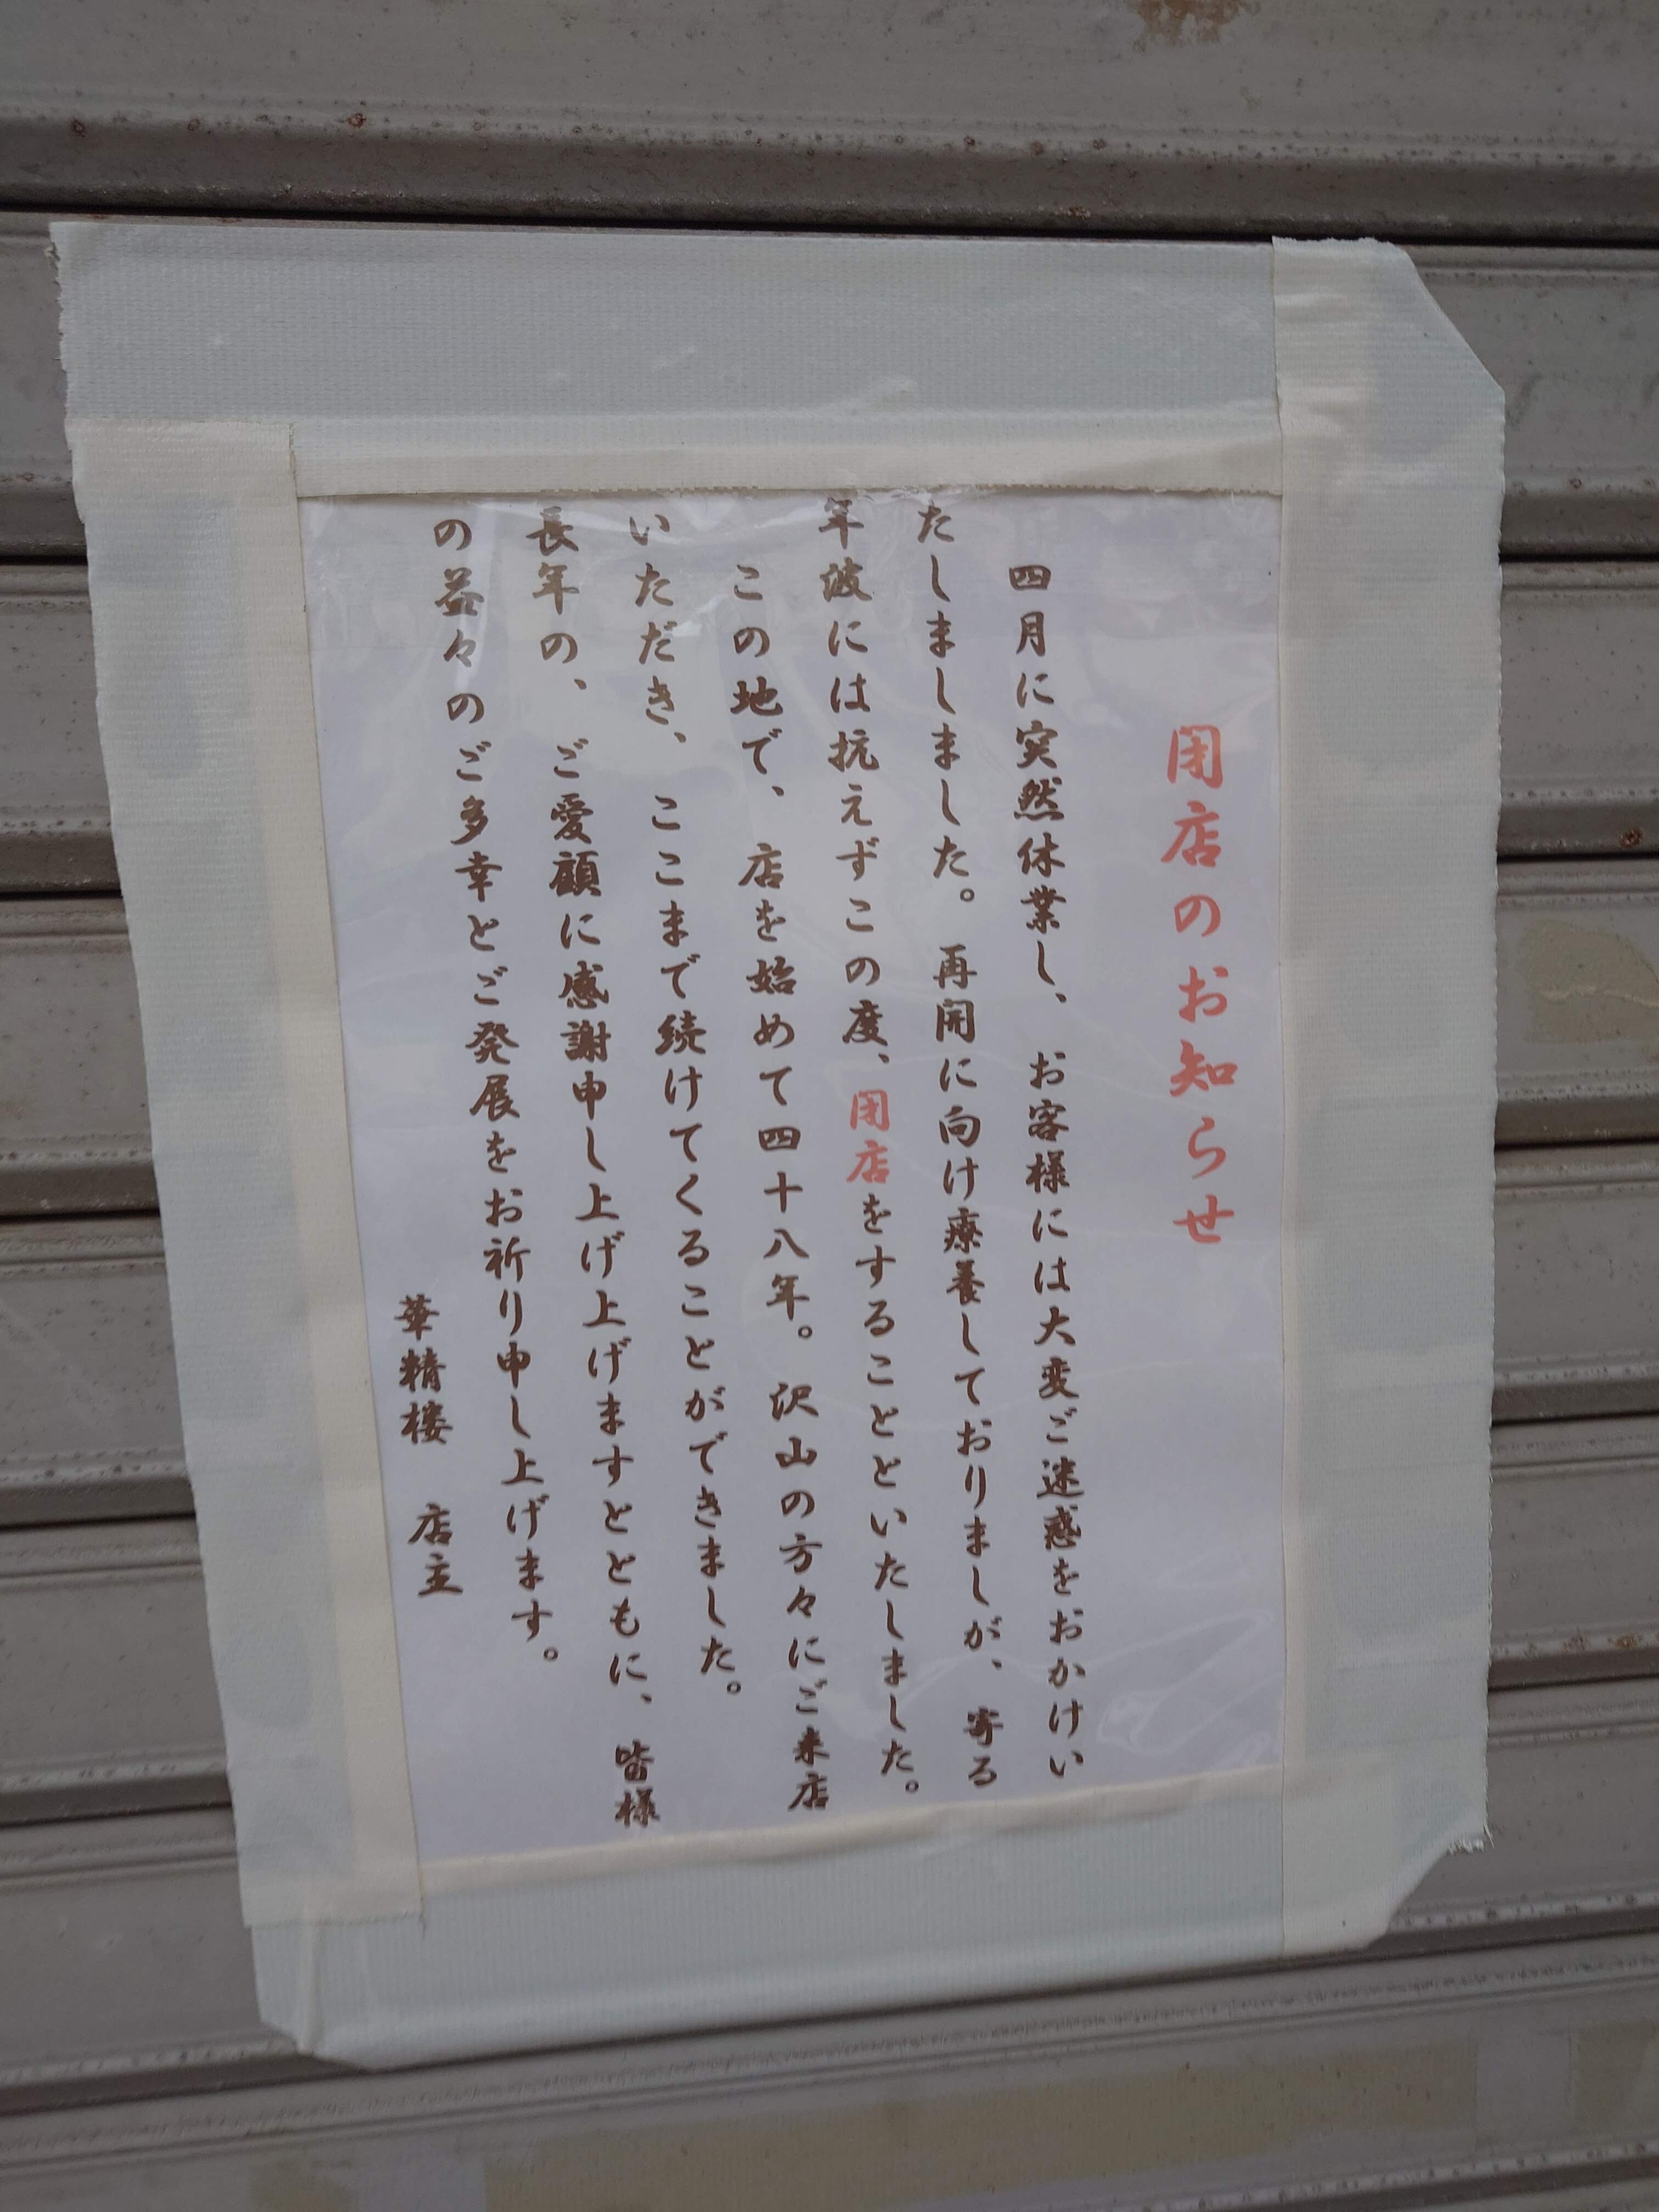 閉店のお知らせ
四月に突然休業し、お客様には大変ご迷惑をおかけい
たしました。再開に向け療養しておりましが、寄る
年波には抗えずこの度、閉店をすることといたしました。
この地で、店を始めて四十八年。沢山の方々にご来店
いただき、ここまで続けてくることができました。
長年の、ご愛顧に感謝申し上げ上げますとともに、皆様
の益々のご多幸とご発展をお祈り申し上げます。
華精楼 店主